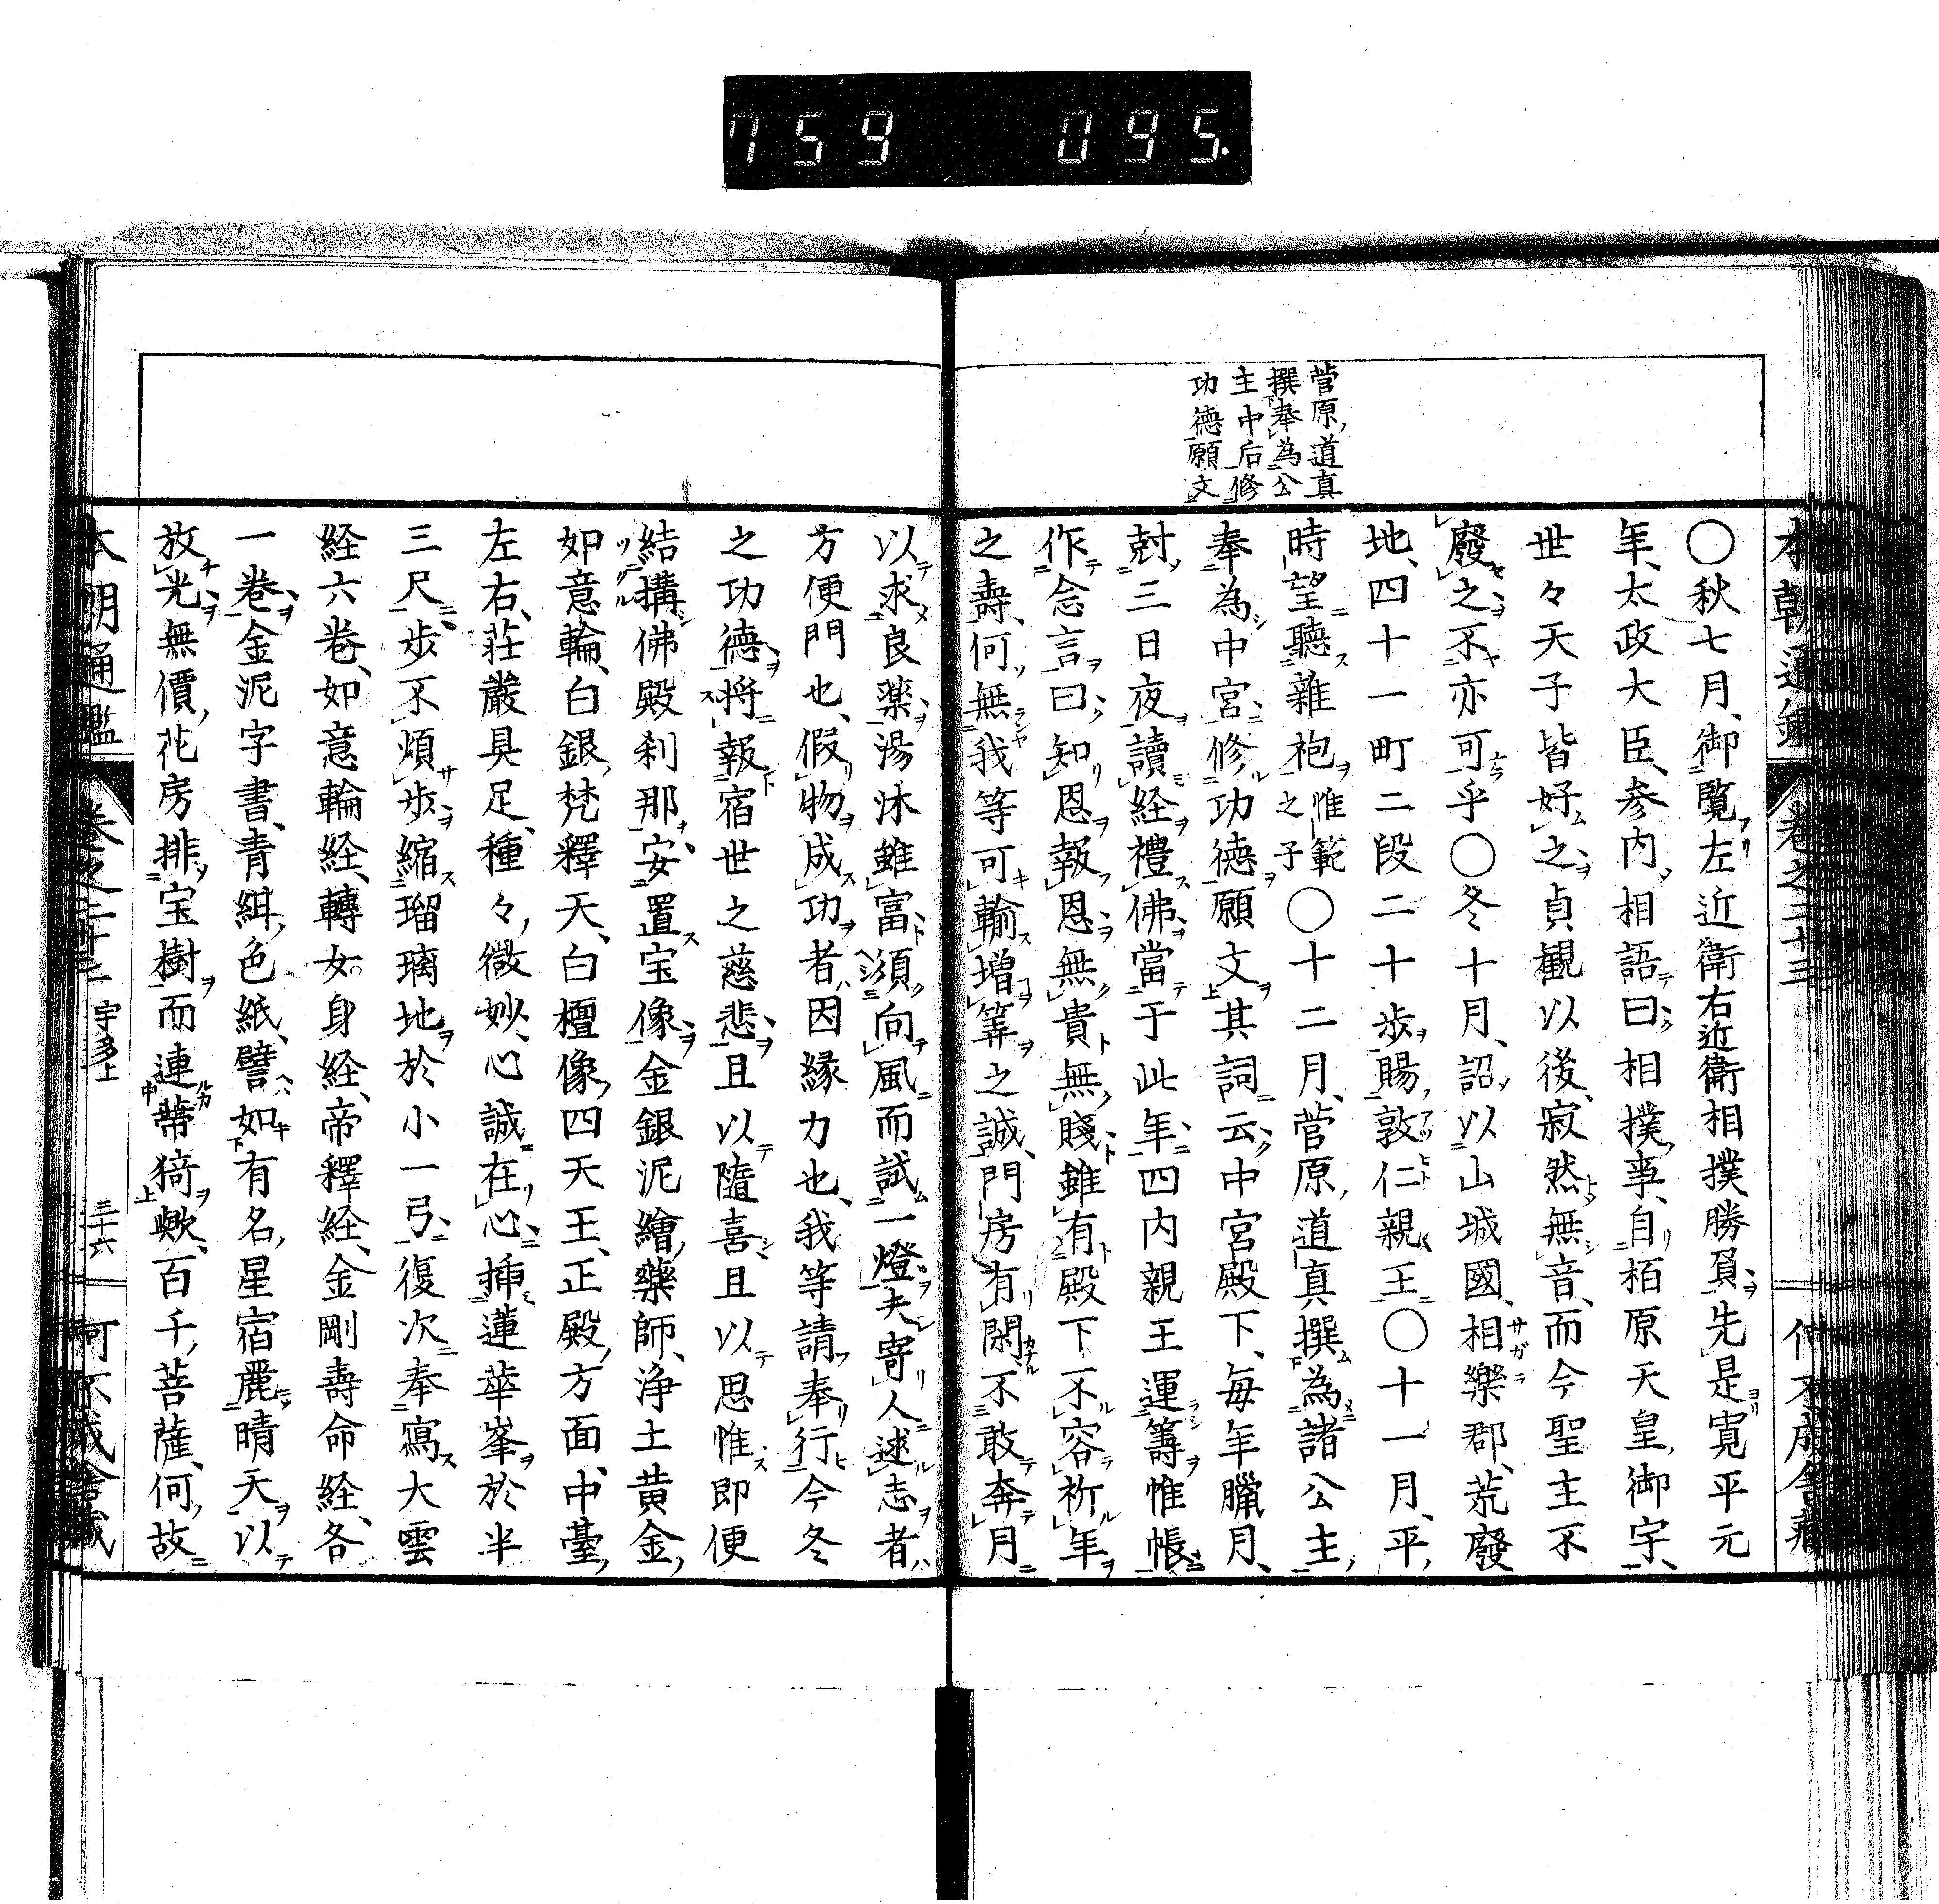 759 095.
菅原道真
撰奉為公
主中后修
功德願文
本朝通鑑 卷之二十三
〇秋七月、御覧左近衛右近衛相撲勝負、先是寛平元
年、太政大臣、参内、相語曰、相撲事、自栢原天皇、御宇、
世々天子皆好之、貞観以後、寂然無音、而今聖主不
廢之、不亦可乎〇冬十月、詔以山城國、相樂郡、荒廢
地、四十一町二段二十歩、賜敦仁親王〇十一月、平
時望聽雜袍惟範之子〇十二月、菅原道真撰為諸公主、
奉為中宮、修功德願文、其詞云、中宮殿下、毎年臘月、
尅三日夜、讀経禮佛、當于此年、四内親王運籌惟帳
作念言曰、知恩報恩、無貴無賤、雖有殿下不容祈年
之壽、何無我等可輸増筭之誠、門房有閑、不敢奔月
以求良藥、湯沐雖富、須向風而試一燈、夫寄人逑志者
方便門也、假物成功者、因縁力也、我等請奉行今冬
之功德、将報宿世之慈悲、且以隨喜、且以思惟、即便
結搆佛殿刹那、安置宝像、金銀泥繪、藥師、浄土黄金、
如意輪、白銀、梵釋天、白檀像、四天王、正殿、方面、中臺、
左右、荘嚴具足、種々微妙、心誠在心、揷蓮華峯於半
三尺、歩不煩歩、縮瑠璃地於小一弓、復次奉寫大雲
経六卷、如意輪経、轉女身経、帝釋経、金剛壽命経、各
一卷、金泥字書、青紺色紙、譬如有名星宿麗晴天、以
放光無價、花房排宝樹而連蔕猗歟、百千菩薩、何故
本朝通鑑 卷之二十三 宇多上 三十六